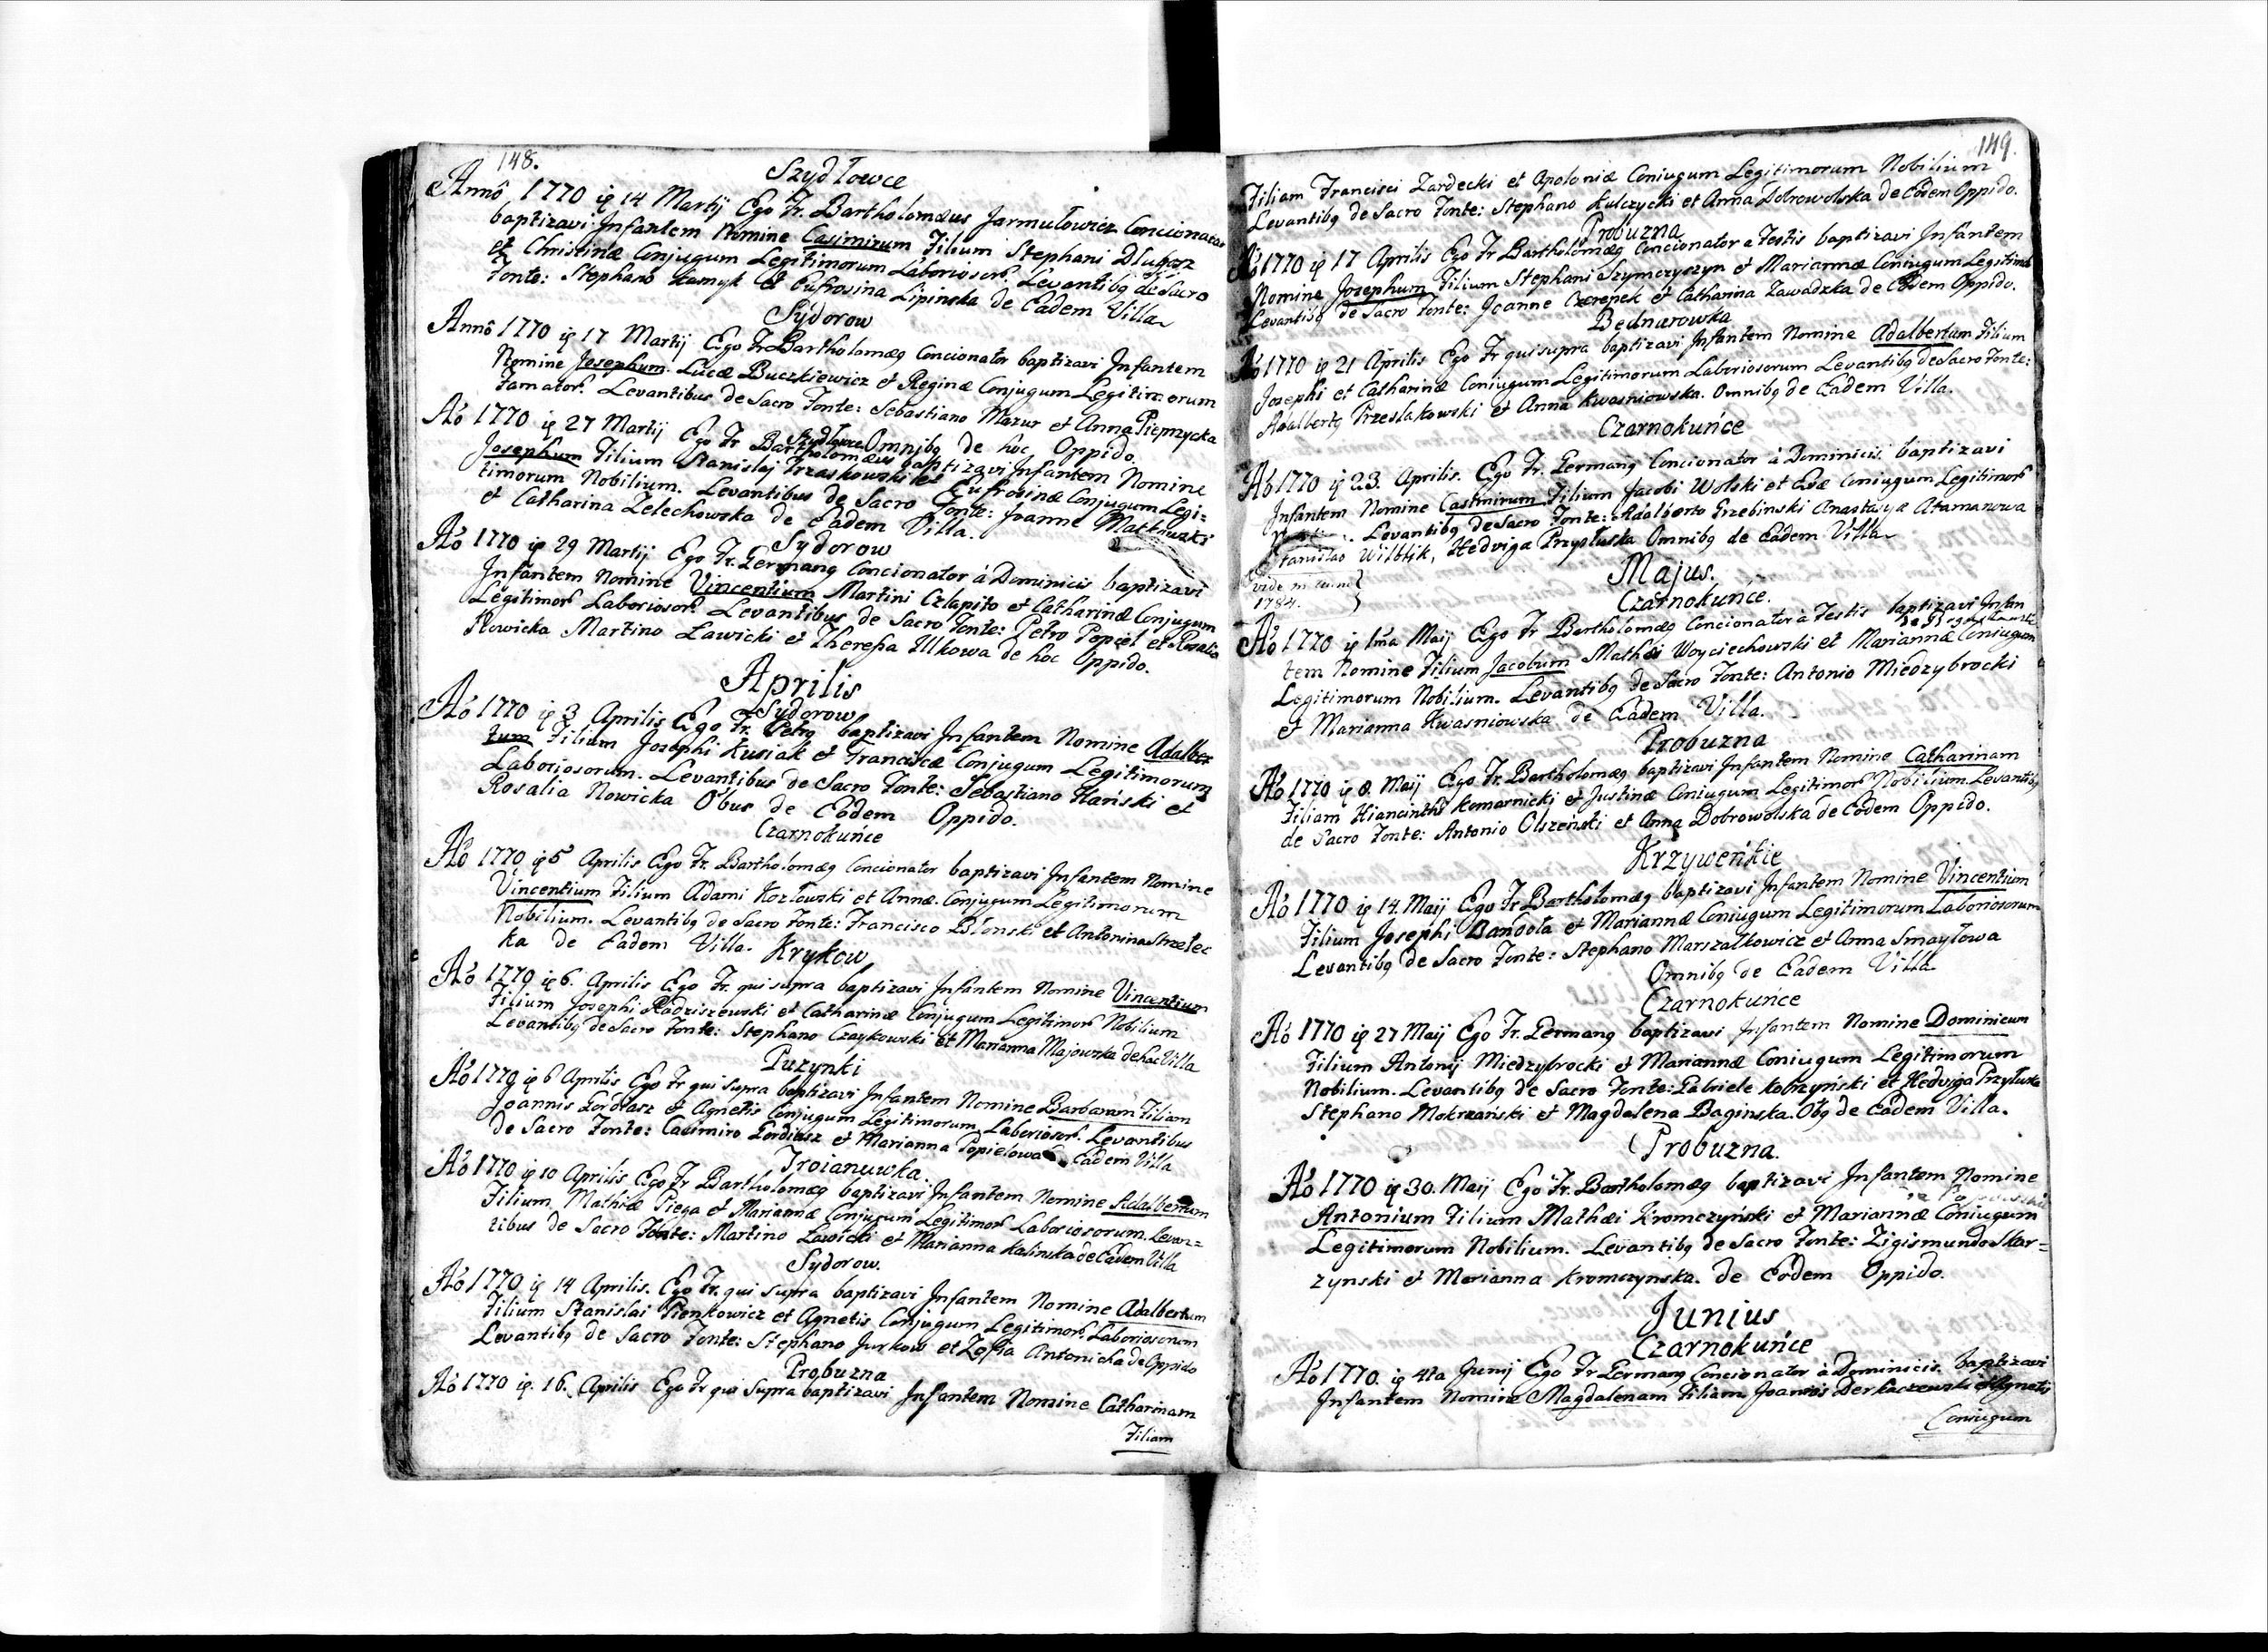 148.
Szydłowce
Annô 1770 ip 14 Martij Ego Fr. Bartholomæus Jarmułowicz Concionator
baptizavi Infantem Nomine Casimirum Filium Stephani Długosz
et Christinæ Conjugum Legitimorum Laboriosor. Levantibq de Sacro
Fonte: Stephano Kamyk et Eufrosina Lipinska de Eadem Villa
Sydorow
Annô 1770 ip 17 Martij Ego Fr Bartholomæq Concionator baptizavi Infantem
Nomine Josephum. Lucæ Buczkiewicz et Reginæ Conjugum Legitimorum
Famator. Levantibus de Sacro Fonte: Sebastiano Mazur et Anna Pieprzycka
Omnibq de hoc Oppido.
Szydłowce
Ao 1770 ip 27 Martij Ego Fr Bartholomæus baptizavi Infantem Nomine
Josephum Filium Stanislaj Trzaskowski et Eufrosinæ Conjugum Legi=
timorum Nobilium. Levantibus de Sacro Fonte: Joanne
et Catharina Zelechowska de Eadem Villa.
Sydorow
Ao 1770 ip 29 Martij Ego Fr. Germanq Concionator à Dominicis baptizavi
Infantem Nomine Vincentium Martini Człapito et Catharinæ Conjugum
Legitimor Laboriosor. Levantibus de Sacro Fonte: Petro Popiel et Rosalia
Nowicka Martino Ławicki et Theresa Ilkowa de hoc Oppido.
Aprilis
Sydorow
Ao 1770 ip 3 Aprilis Ego Fr. Petrq baptizavi Infantem Nomine Adalber
tum Filium Josephi Kusiak et Franciscæ Conjugum Legitimorum
Laboriosorum. Levantibus de Sacro Fonte: Sebastiano Hański et
Rosalia Nowicka Obus de Eodem Oppido.
Czarnokuńce
Ao 1770 ip 5 Aprilis Ego Fr. Bartholomæq Concionator baptizavi Infantem Nomine
Vincentium Filium Adami Kozłowski et Annæ Conjugum Legitimorum
Nobilium. Levantibq de Sacro Fonte: Francisco Błonski et Antonina Strzelec
ka de Eadem Villa.
Krykow
Ao 1770 ip 6. Aprilis Ego Fr. qui supra baptizavi Infantem Nomine Vincentium
Filium Josephi Radziszewski et Catharinæ Conjugum Legitimor Nobilium
Levantibq de Sacro Fonte: Stephano Czaykowski et Marianna Majowska de hac Villa
Puzynki
Ao 1770 ip 6 Aprilis Ego Fr qui supra baptizavi Infantem Nomine Barbaram Filiam
Joannis Gordiasz et Agnetis Conjugum Legitimorum Laboriosor. Levantibus
de Sacro Fonte: Casimiro Gordiasz et Marianna Popielowa Eadem Villa
Troianuwka.
Ao 1770 ip 10 Aprilis Ego Fr Bartholomæq baptizavi Infantem Nomine Adalbertum
Filium Mathiæ Piega et Mariannæ Conjugum Legitimor Laboriosorum. Levan=
tibus de Sacro Fonte: Martino Ławicki et Marianna Kalinska de Eadem Villa
Sydorow.
Ao 1770 ip 14 Aprilis. Ego Fr. qui supra baptizavi Infantem Nomine Adalbertum
Filium Stanislai Pienkowicz et Agnetis Conjugum Legitimor. Laboriosorum
Levantibq de Sacro Fonte: Stephano Jurkow et Zofia Antonicha de Oppido
Probuzna
Ao 1770 ip. 16. Aprilis Ego Fr qui supra baptizavi Infantem Nomine Catharinam
Filiam
149.
Filiam Francisci Zardecki et Apoloniæ Coniugum Legitimorum Nobilium
Levantibq de Sacro Fonte: Stephano Kulczycki et Anna Dobrowolska de Eodem Oppido.
Probuzna
Ao 1770 ip 17 Aprilis Ego Fr Bartholomæq Concionator a Festis baptizavi Infantem
Nomine Josephum Filium Stephani Szymczyszyn et Mariannæ Coniugum Legitimor
Levantibq de Sacro Fonte: Joanne Czerepek et Catharina Zawadzka de Eodem Oppido.
Bednarowka
Ao 1770 ip 21 Aprilis Ego Fr qui supra baptizavi Infantem Nomine Adalbertum Filium
Josephi et Catharinæ Coniugum Legitimorum Laboriosorum Levantibq de Sacro Fonte:
Adalbertq Przesłakowski et Anna Kwasniowska. Omnibq de Eadem Villa.
Czarnokuńce
Ao 1770 ip 23. Aprilis. Ego Fr. Germanq Concionator à Dominicis. baptizavi
Infantem Nomine Casimirum Filium Jacobi Wolski et Evæ Coniugum Legitimor
Levantibq de Sacro Fonte: Adalberto Grzebinski Anastasya Atamanowa
Stanislao Wilblik, Hedviga Przyłuska Omnibq de Eadem Villa
vide
1784.
Majus.
Czarnokuńce.
Ao 1770 ip 1ma Maij Ego Fr Bartholomæq Concionator à Festis baptizavi Infan
tem Nomine Filium Jacobum Mathæi Woyciechowski et Mariannæ Coniugum
Legitimorum Nobilium. Levantibq de Sacro Fonte: Antonio Miedzybrocki
et Marianna Kwasniowska de Eadem Villa.
Probuzna
Ao 1770 ip 8. Maij Ego Fr. Bartholomæq baptizavi Infantem Nomine Catharinam
Filiam Hiancinthi Komarnicki et Justinæ Coniugum Legitimor Nobilium. Levantibq
de Sacro Fonte: Antonio Olszeński et Anna Dobrowolska de Eodem Oppido.
Krzyweńkie
Ao 1770 ip 14. Maij Ego Fr Bartholomæq baptizavi Infantem Nomine Vincentium
Filium Josephi Bandoła et Mariannæ Coniugum Legitimorum Laboriosorum
Levantibq de Sacro Fonte: Stephano Marszałkowicz et Anna Smayłowa
Omnibq de Eadem Villa.
Czarnokuńce
Ao 1770 ip 27 Maij Ego Fr. Germanq baptizavi Infantem Nomine Dominicum
Filium Antonij Miedzybrocki et Mariannæ Coniugum Legitimorum
Nobilium. Levantibq de Sacro Fonte: Gabriele Kobrzyński et Hedviga Przyłuska
Stephano Mokrzański et Magdalena Baginska. Obq de Eadem Villa.
Probuzna.
Ao 1770 ip 30. Maij Ego Fr. Bartholomæq baptizavi Infantem Nomine
Antonium Filium Mathæi Kromczyński et Mariannæ Coniugum
Legitimorum Nobilium. Levantibq de Sacro Fonte: Zigismundo Skar=
zynski et Marianna Kromczynska. de Eodem Oppido.
Junius
Czarnokuńce
Ao 1770. ip 4ta Junij Ego Fr Germanq Concionator à Dominicis. baptizavi
Infantem Nomine Magdalenam Filiam Joannis Derkaczewski et Agnetis
Coniugum